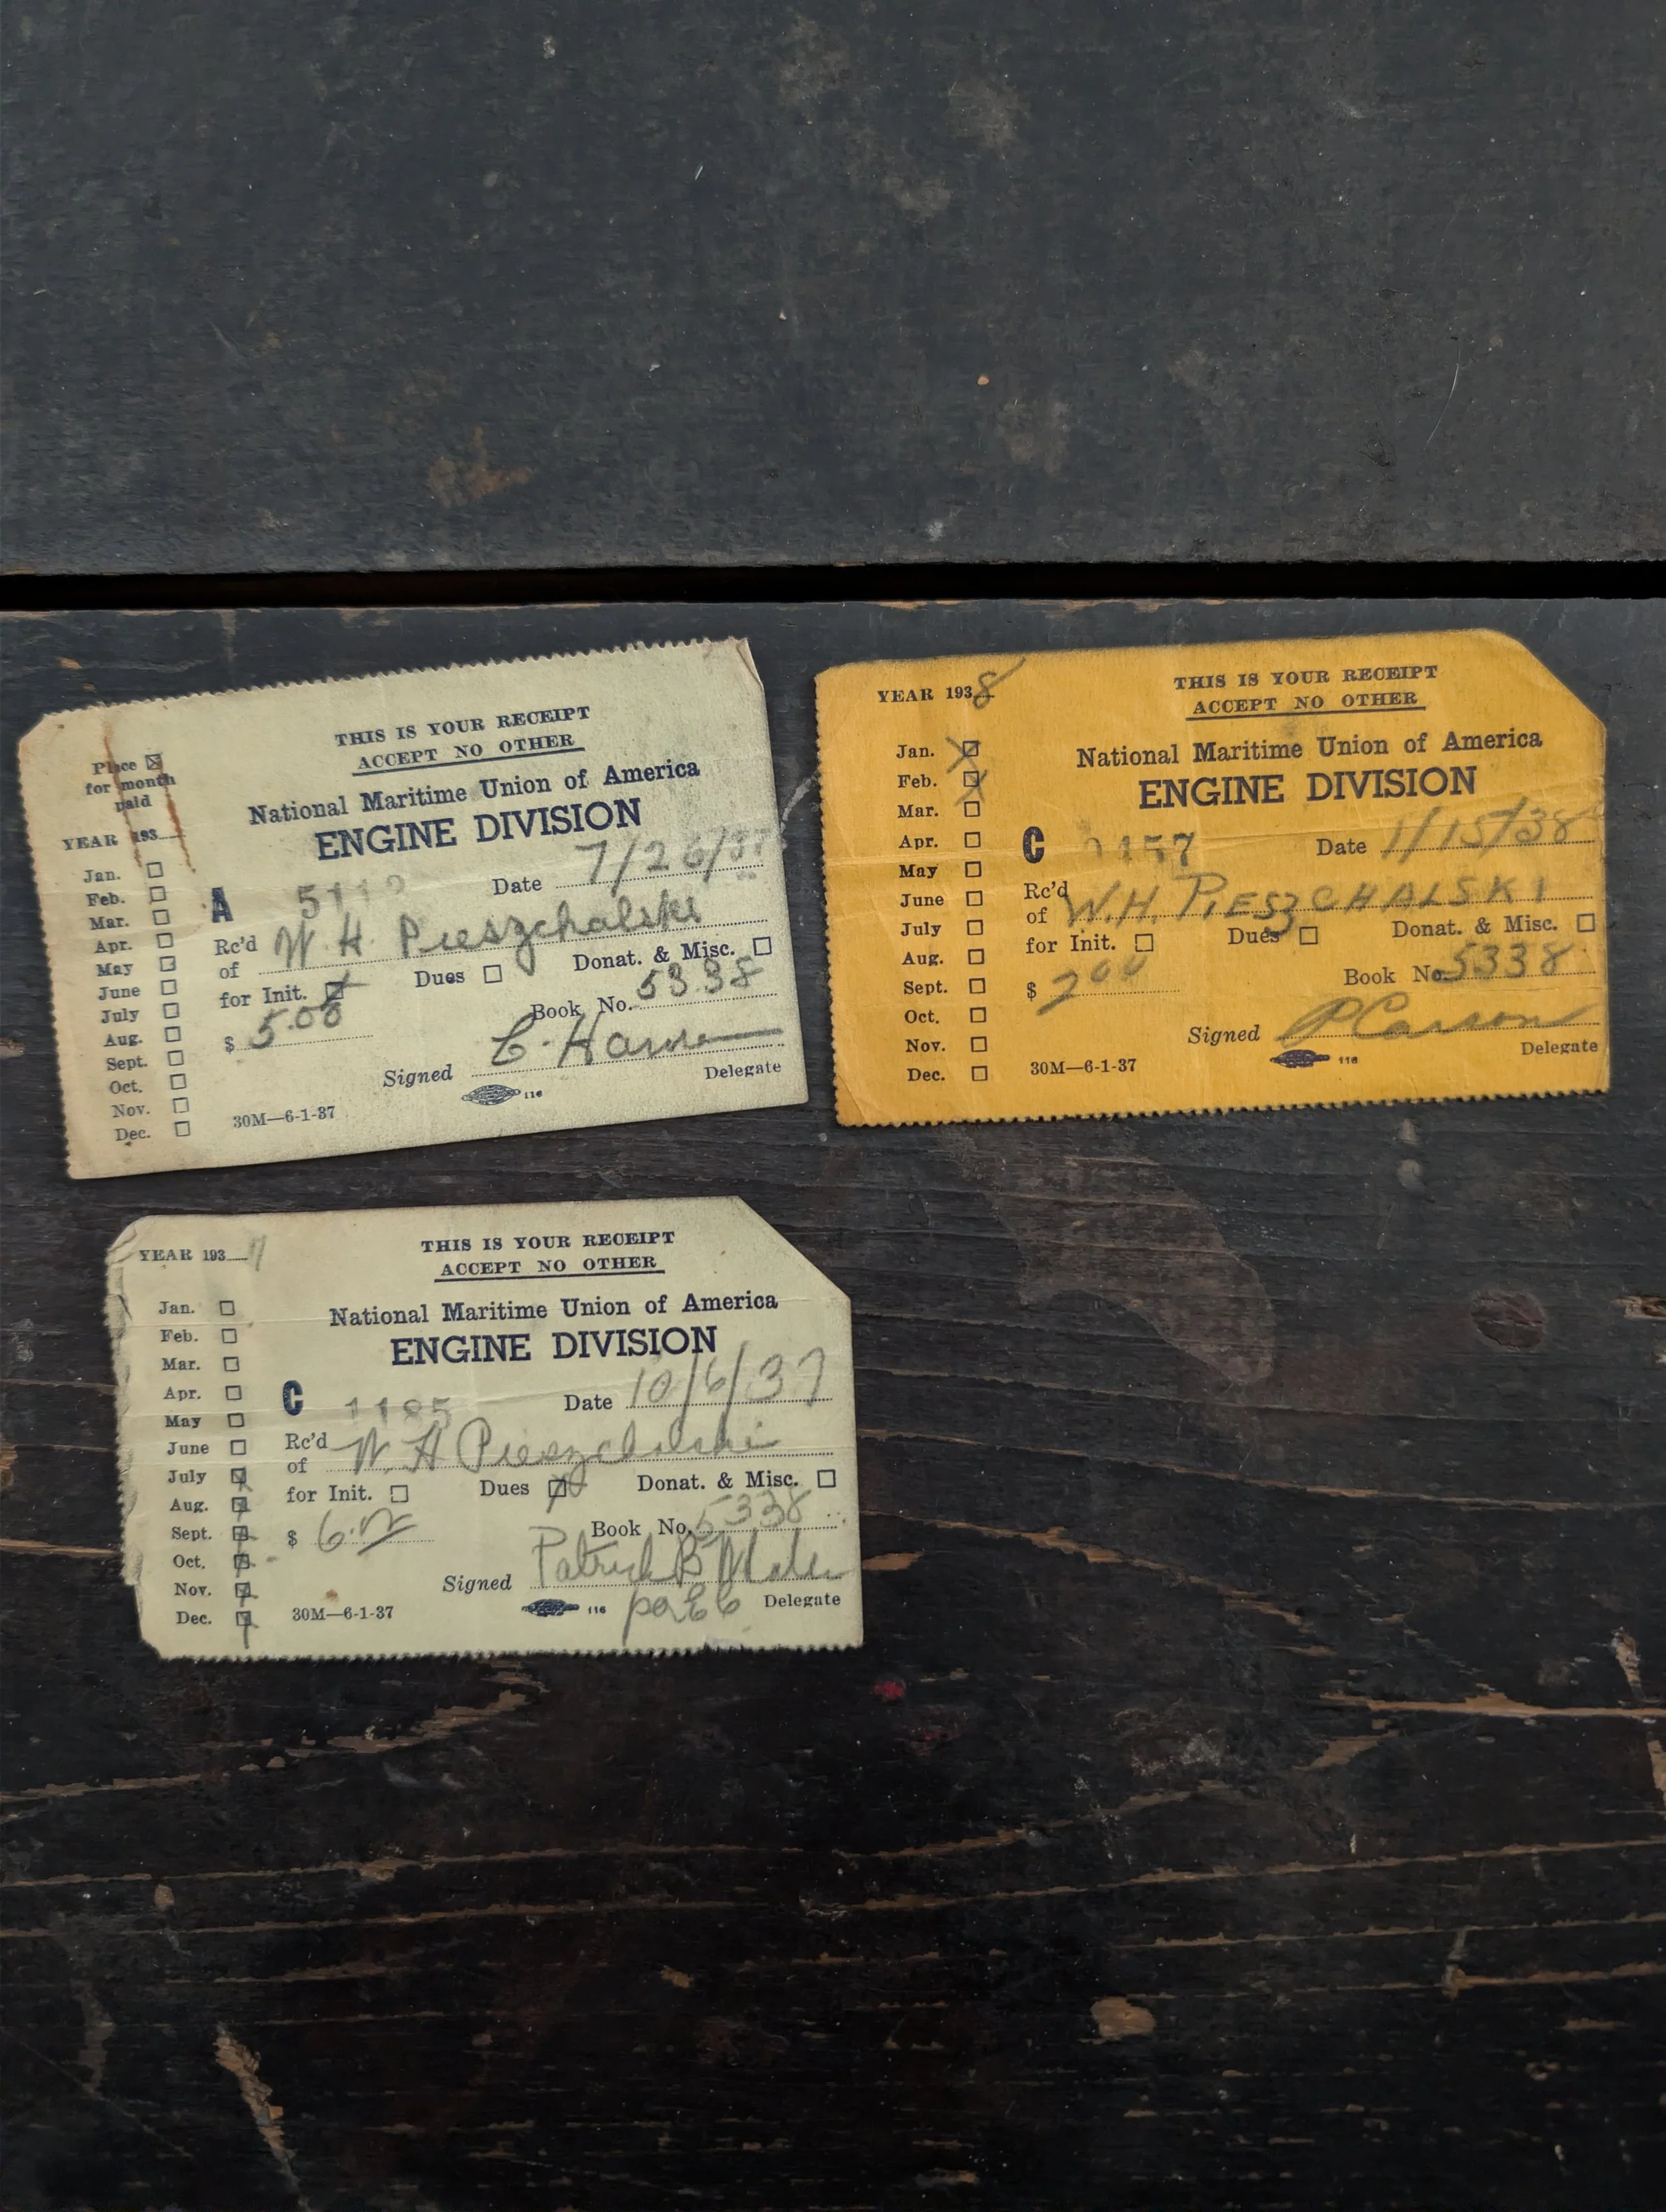 Place ☒
for month
paid
YEAR 193
Jan. ☐
Feb. ☐
Mar. ☐
Apr. ☐
May ☐
June ☐
July ☐
Aug. ☐
Sept. ☐
Oct. ☐
Nov. ☐
Dec. ☐
THIS IS YOUR RECEIPT
ACCEPT NO OTHER
National Maritime Union of America
ENGINE DIVISION
A Date 7/26/37
Rc'd
of W. H. Pieszchalski
for Init. ☒ Dues ☐ Donat. & Misc. ☐
$ 5.00 Book No. 5338
Signed
Delegate
116
30M—6-1-37
YEAR 1938
Jan. ☒
Feb. ☒
Mar. ☐
Apr. ☐
May ☐
June ☐
July ☐
Aug. ☐
Sept. ☐
Oct. ☐
Nov. ☐
Dec. ☐
THIS IS YOUR RECEIPT
ACCEPT NO OTHER
National Maritime Union of America
ENGINE DIVISION
C Date 1/15/38
Rc'd
of W.H. PIESZCHALSKI
for Init. ☐ Dues ☐ Donat. & Misc. ☐
$ 2.00 Book No. 5338
Signed P Carson
Delegate
116
30M—6-1-37
YEAR 1937
Jan. ☐
Feb. ☐
Mar. ☐
Apr. ☐
May ☐
June ☐
July ☒
Aug. ☒
Sept. ☒
Oct. ☒
Nov. ☒
Dec. ☒
THIS IS YOUR RECEIPT
ACCEPT NO OTHER
National Maritime Union of America
ENGINE DIVISION
C 1185 Date 10/6/37
Rc'd
of W. H Pieszchalski
for Init. ☐ Dues ☒ Donat. & Misc. ☐
$ 6.00 Book No. 5338
Signed Patrick B
Delegate
116
30M—6-1-37